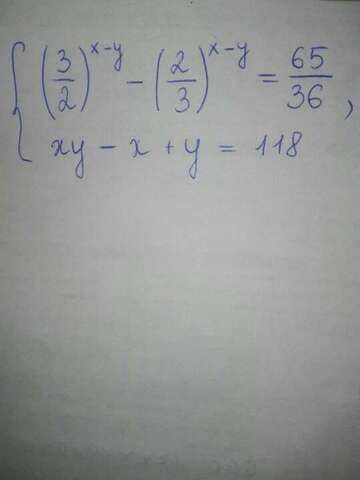 (3/2)^{x-y} - (2/3)^{x-y} = 65/36,
xy - x + y = 118